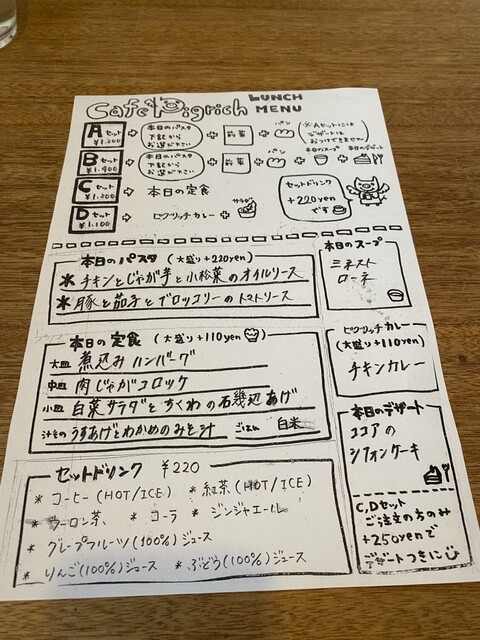 Cafe Pigrich LUNCH MENU
Aセット ¥1,200 → 本日のパスタ 下記からお選び下さい + 前菜 + パン (※Aセットにはデザートはおつけできません)
Bセット ¥1,400 → 本日のパスタ 下記からお選び下さい + 前菜 + パン + 本日のスープ + 本日のデザート
Cセット ¥1,200 → 本日の定食
Dセット ¥1,100 → ピグリッチカレー + サラダ
セットドリンク
+220yen
です
本日のパスタ (大盛り+220yen)
* チキンとじゃが芋と小松菜のオイルソース
* 豚と茄子とブロッコリーのトマトソース
本日のスープ
ミネスト
ローネ
本日の定食 (大盛り+110yen)
大皿 煮込みハンバーグ
中皿 肉じゃがコロッケ
小皿 白菜サラダとちくわの石幾辺あげ
汁もの うすあげとわかめのみそ汁 ごはん 白米
ピグリッチカレー
(大盛り+110yen)
チキンカレー
本日のデザート
ココアの
シフォンケーキ
C,Dセット
ご注文の方のみ
+250yenで
デザートつきに
セットドリンク ¥220
* コーヒー(HOT/ICE) * 紅茶(HOT/ICE)
* ウーロン茶 * コーラ * ジンジャエール
* グレープフルーツ(100%)ジュース
* りんご(100%)ジュース * ぶどう(100%)ジュース